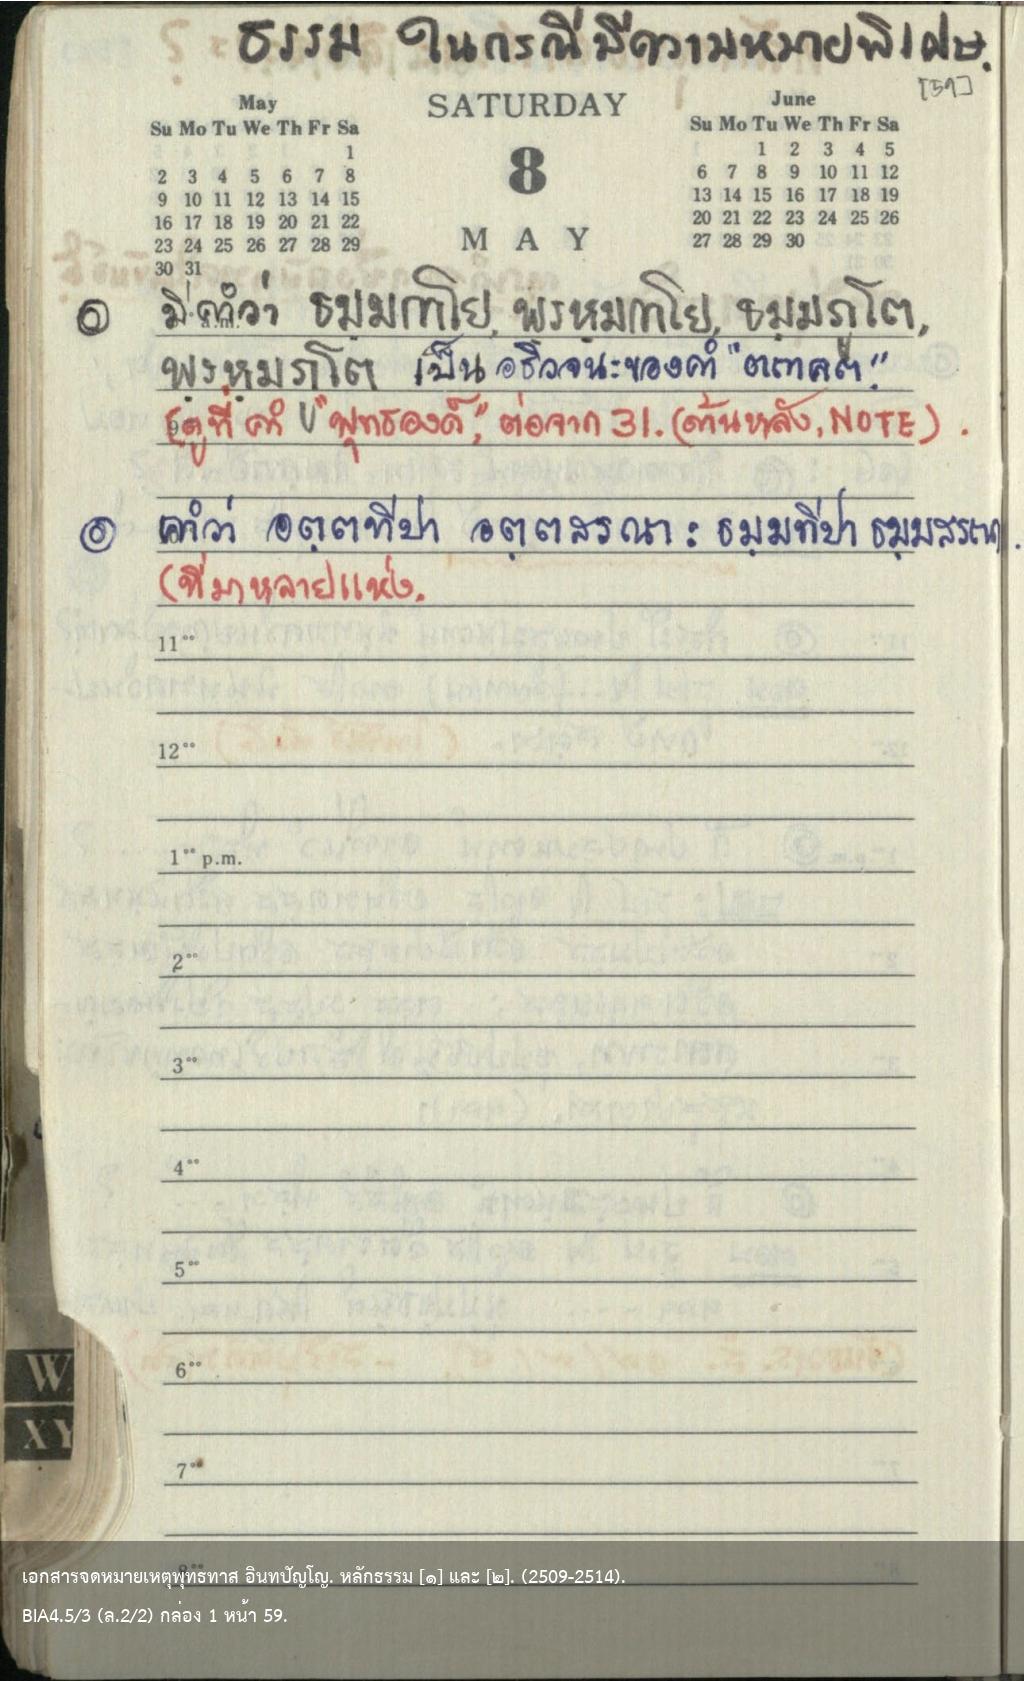 ธรรม ในกรณีมีความหมายพิเศษ.
[59]
May
Su Mo Tu We Th Fr Sa
1
2 3 4 5 6 7 8
9 10 11 12 13 14 15
16 17 18 19 20 21 22
23 24 25 26 27 28 29
30 31
SATURDAY
8
MAY
June
Su Mo Tu We Th Fr Sa
1 2 3 4 5
6 7 8 9 10 11 12
13 14 15 16 17 18 19
20 21 22 23 24 25 26
27 28 29 30
๑ มีคำว่า ธมฺมกาโย, พฺรหฺมกาโย, ธมฺมภูโต,
พฺรหฺมภูโต เป็น อธิวจนะของคำ "ตถาคต".
(ดูที่ คำ "พุทธองค์", ต่อจาก 31. (ด้านหลัง, NOTE) .
๒ คำว่า อตฺตทีปา อตฺตสรณา : ธมฺมทีปา ธมฺมสรณา.
(ที่มาหลายแห่ง.
11⁰⁰
12⁰⁰
1⁰⁰ p.m.
2⁰⁰
3⁰⁰
4⁰⁰
5⁰⁰
6⁰⁰
7⁰⁰
8⁰⁰
W
XY
เอกสารจดหมายเหตุพุทธทาส อินทปัญโญ. หลักธรรม [๑] และ [๒]. (2509-2514).
BIA4.5/3 (ล.2/2) กล่อง 1 หน้า 59.